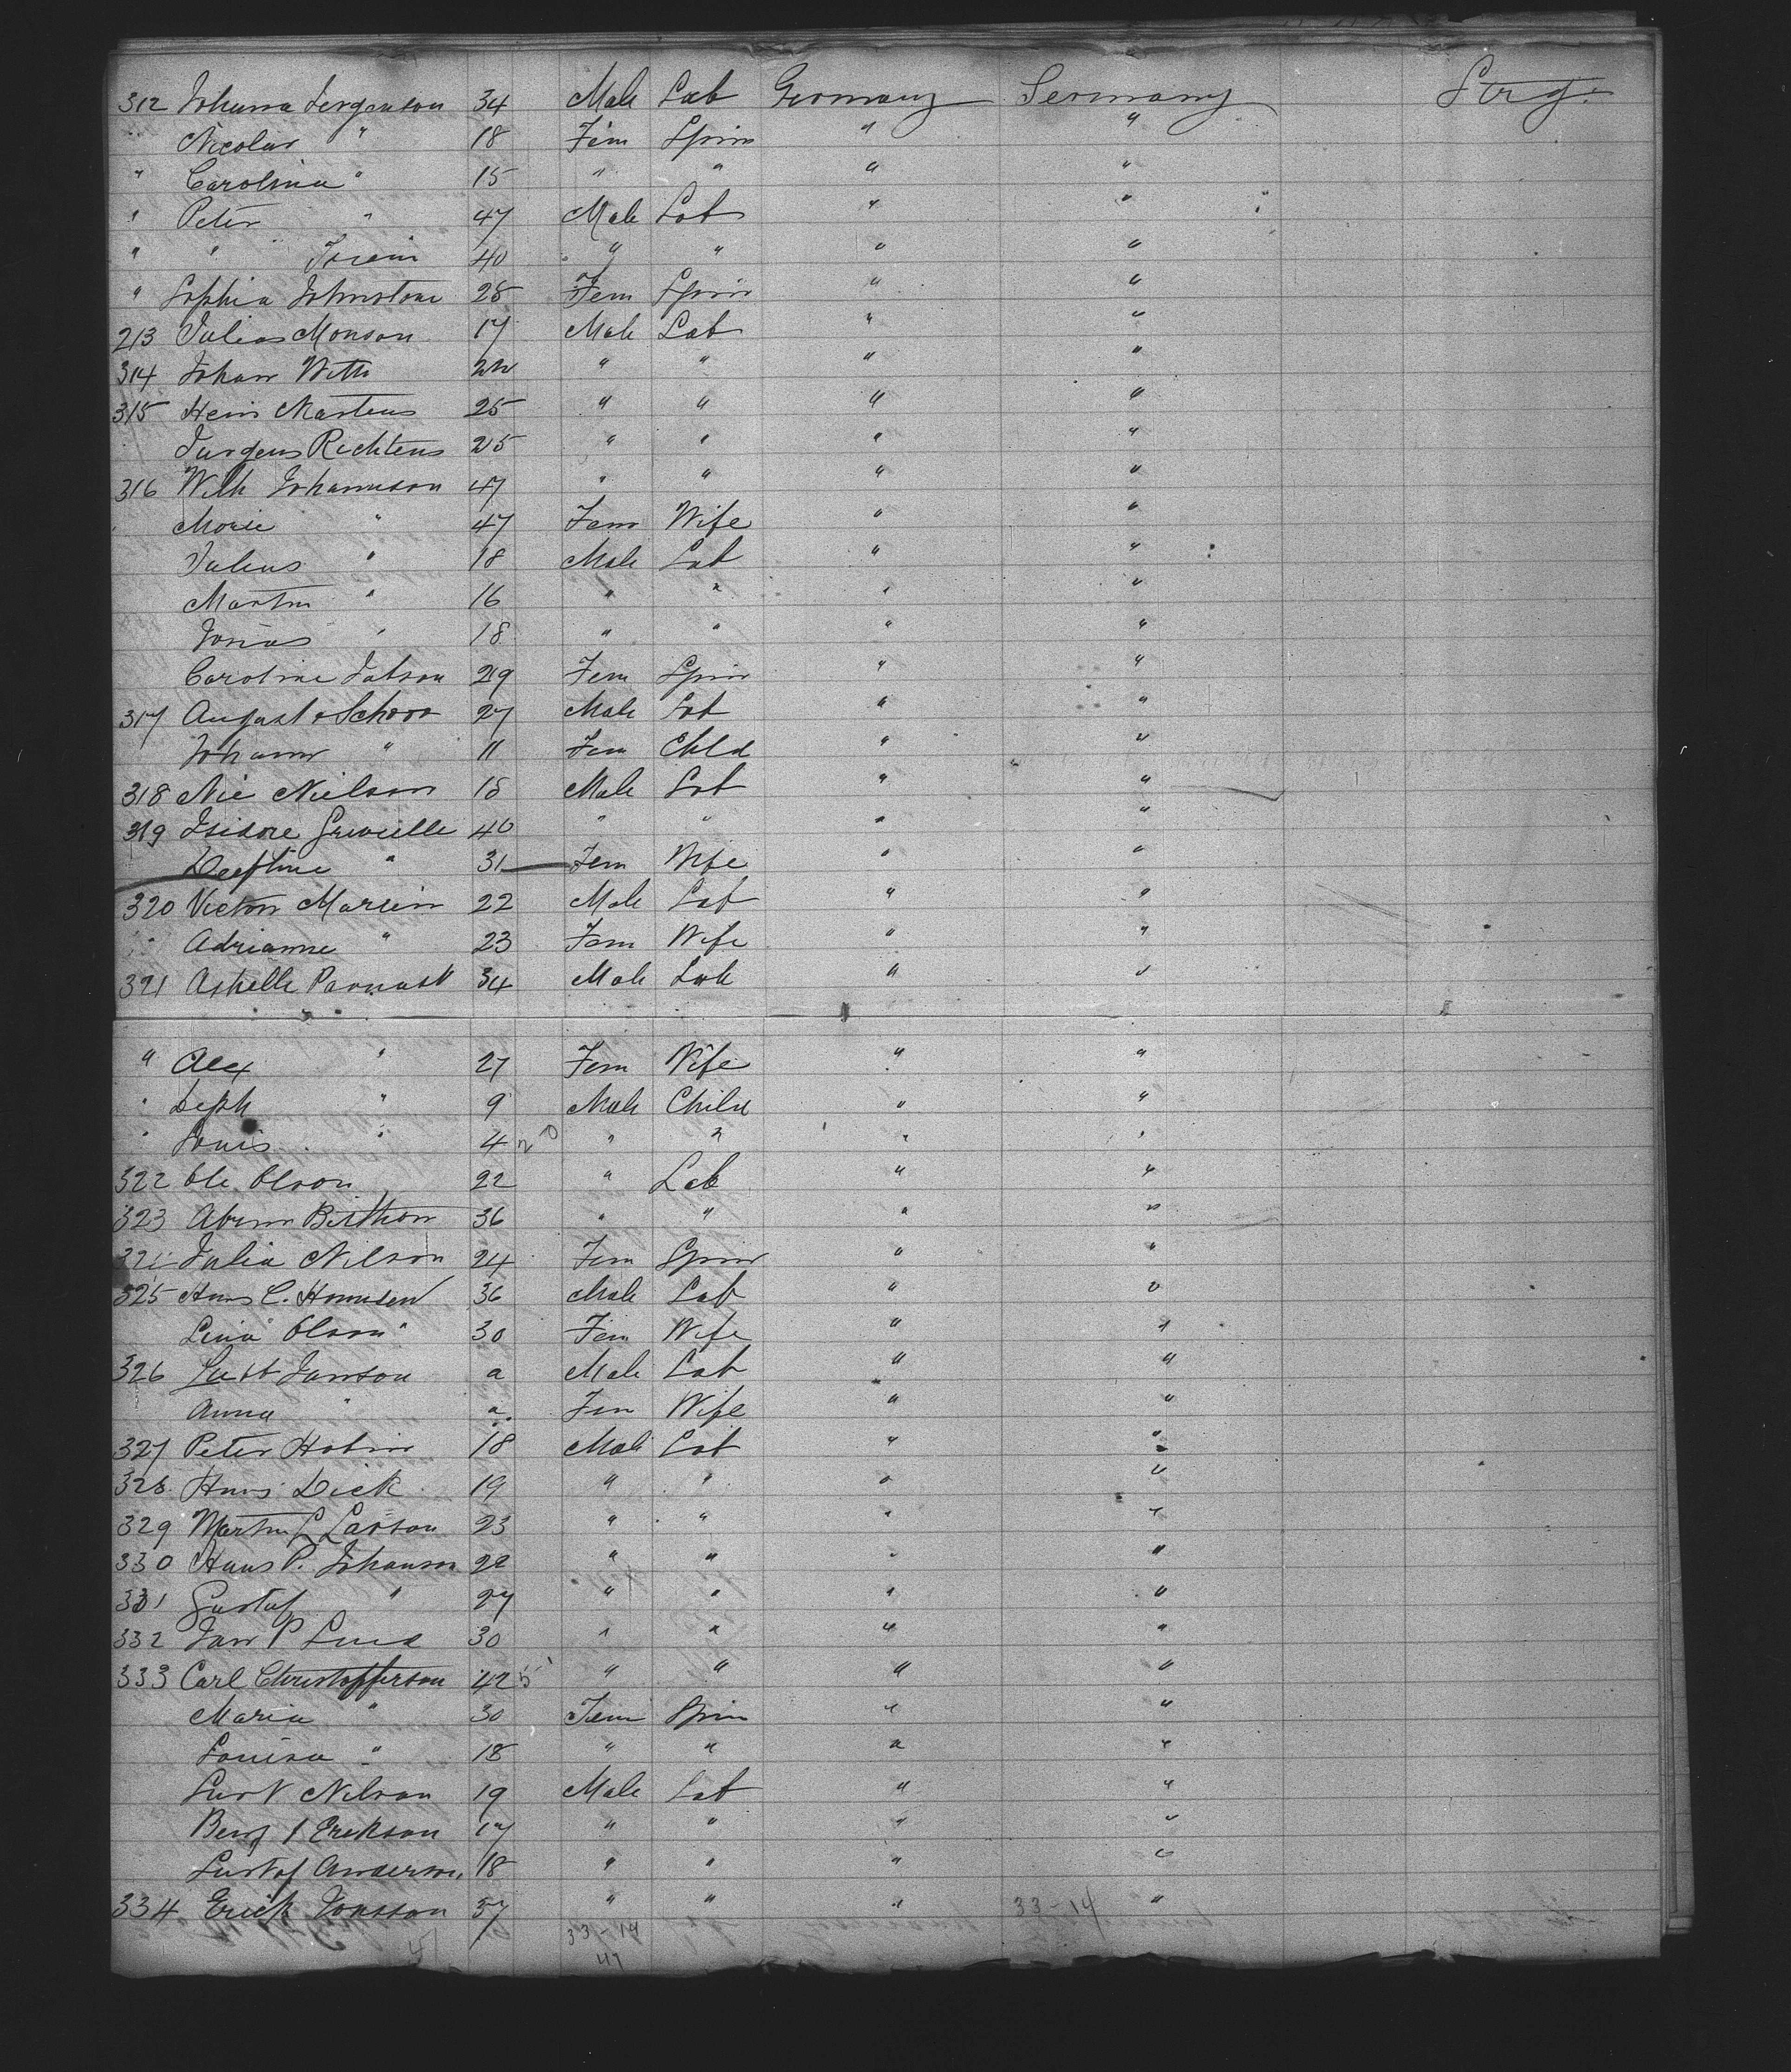 312 Johanna Jergenson 34 Male Lab Germany Germany Strg.
" Nicolar " 18 Fem Spin " "
" Carolina " 15 " " " "
" Peter " 47 Male Lab " "
" " 40 " " " "
" Sophia Johnstone 25 Fem Spin " "
213 Julius Monson 17 Male Lab " "
314 Johann Witt 22 " " " "
315 Hein Martens 25 " " " "
Jurgens Richtens 25 " " " "
316 Wilh Johannson 47 " " " "
Marie " 47 Fem Wife " "
Julius " 18 Male Lab " "
Martin " 16 " " " "
Jonas " 18 " " " "
Caroline Jabson 29 Fem Spin " "
317 August Schoor 27 Male Lab " "
Johann " 11 Fem Child " "
318 Nic Nielson 18 Male Lab " "
319 Isidore 40 " " " "
" 31 Fem Wife " "
320 Victor Marien 22 Male Lab " "
" Adrianne " 23 Fem Wife " "
321 34 Male Lab " "
" Alex " 27 Fem Wife " "
" Deph " 9 Male Child " "
" Louis " 4 " " " "
322 Ole Olson 22 " Lab " "
323 Abrm 36 " " " "
Julia Nilson 24 Fem Spin " "
325 Hans C. Hannsen 36 Male Lab " "
Lina Olson " 30 Fem Wife " "
326 Janson a Male Lab " "
Anna " a Fem Wife " "
327 Peter 18 Male Lab " "
328 Hans Dick 19 " " " "
329 Martin L Larson 23 " " " "
330 Hans P. Johanson 22 " " " "
331 Gustaf " 27 " " " "
332 Jan P Lund 30 " " " "
333 Carl Christofferson 42 " " " "
Maria " 30 Fem Spin " "
Louisa " 18 " " " "
Nilson 19 Male Lab " "
Erekson 17 " " " "
Gustaf Anderson 18 " " " "
334 Erick Jonsson 57 " " " 33-14 "
33-14
47